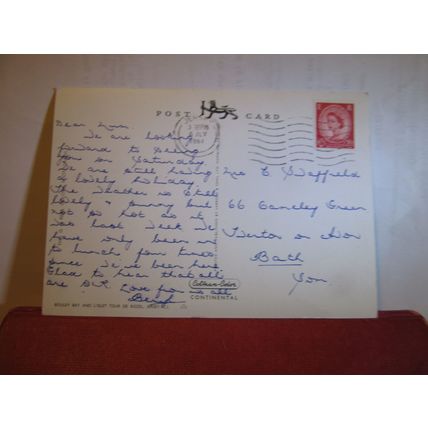 POST CARD
Dear Mum.
We are looking
forward to seeing
you on Saturday.
We are still having
a lovely holiday.
The weather is still
lovely & sunny but
not so hot as it
was last week We
have only been in
to lunch four times
since we've been here
Glad to hear that all
are O.K. Love from us all
Beryl
Mrs E Sheffield
66 Camely Green
Twerton on Avon
Bath
Som.
Colour-Color
CONTINENTAL
BOULEY BAY AND L'ISLET TOUR DE ROZEL, JERSEY